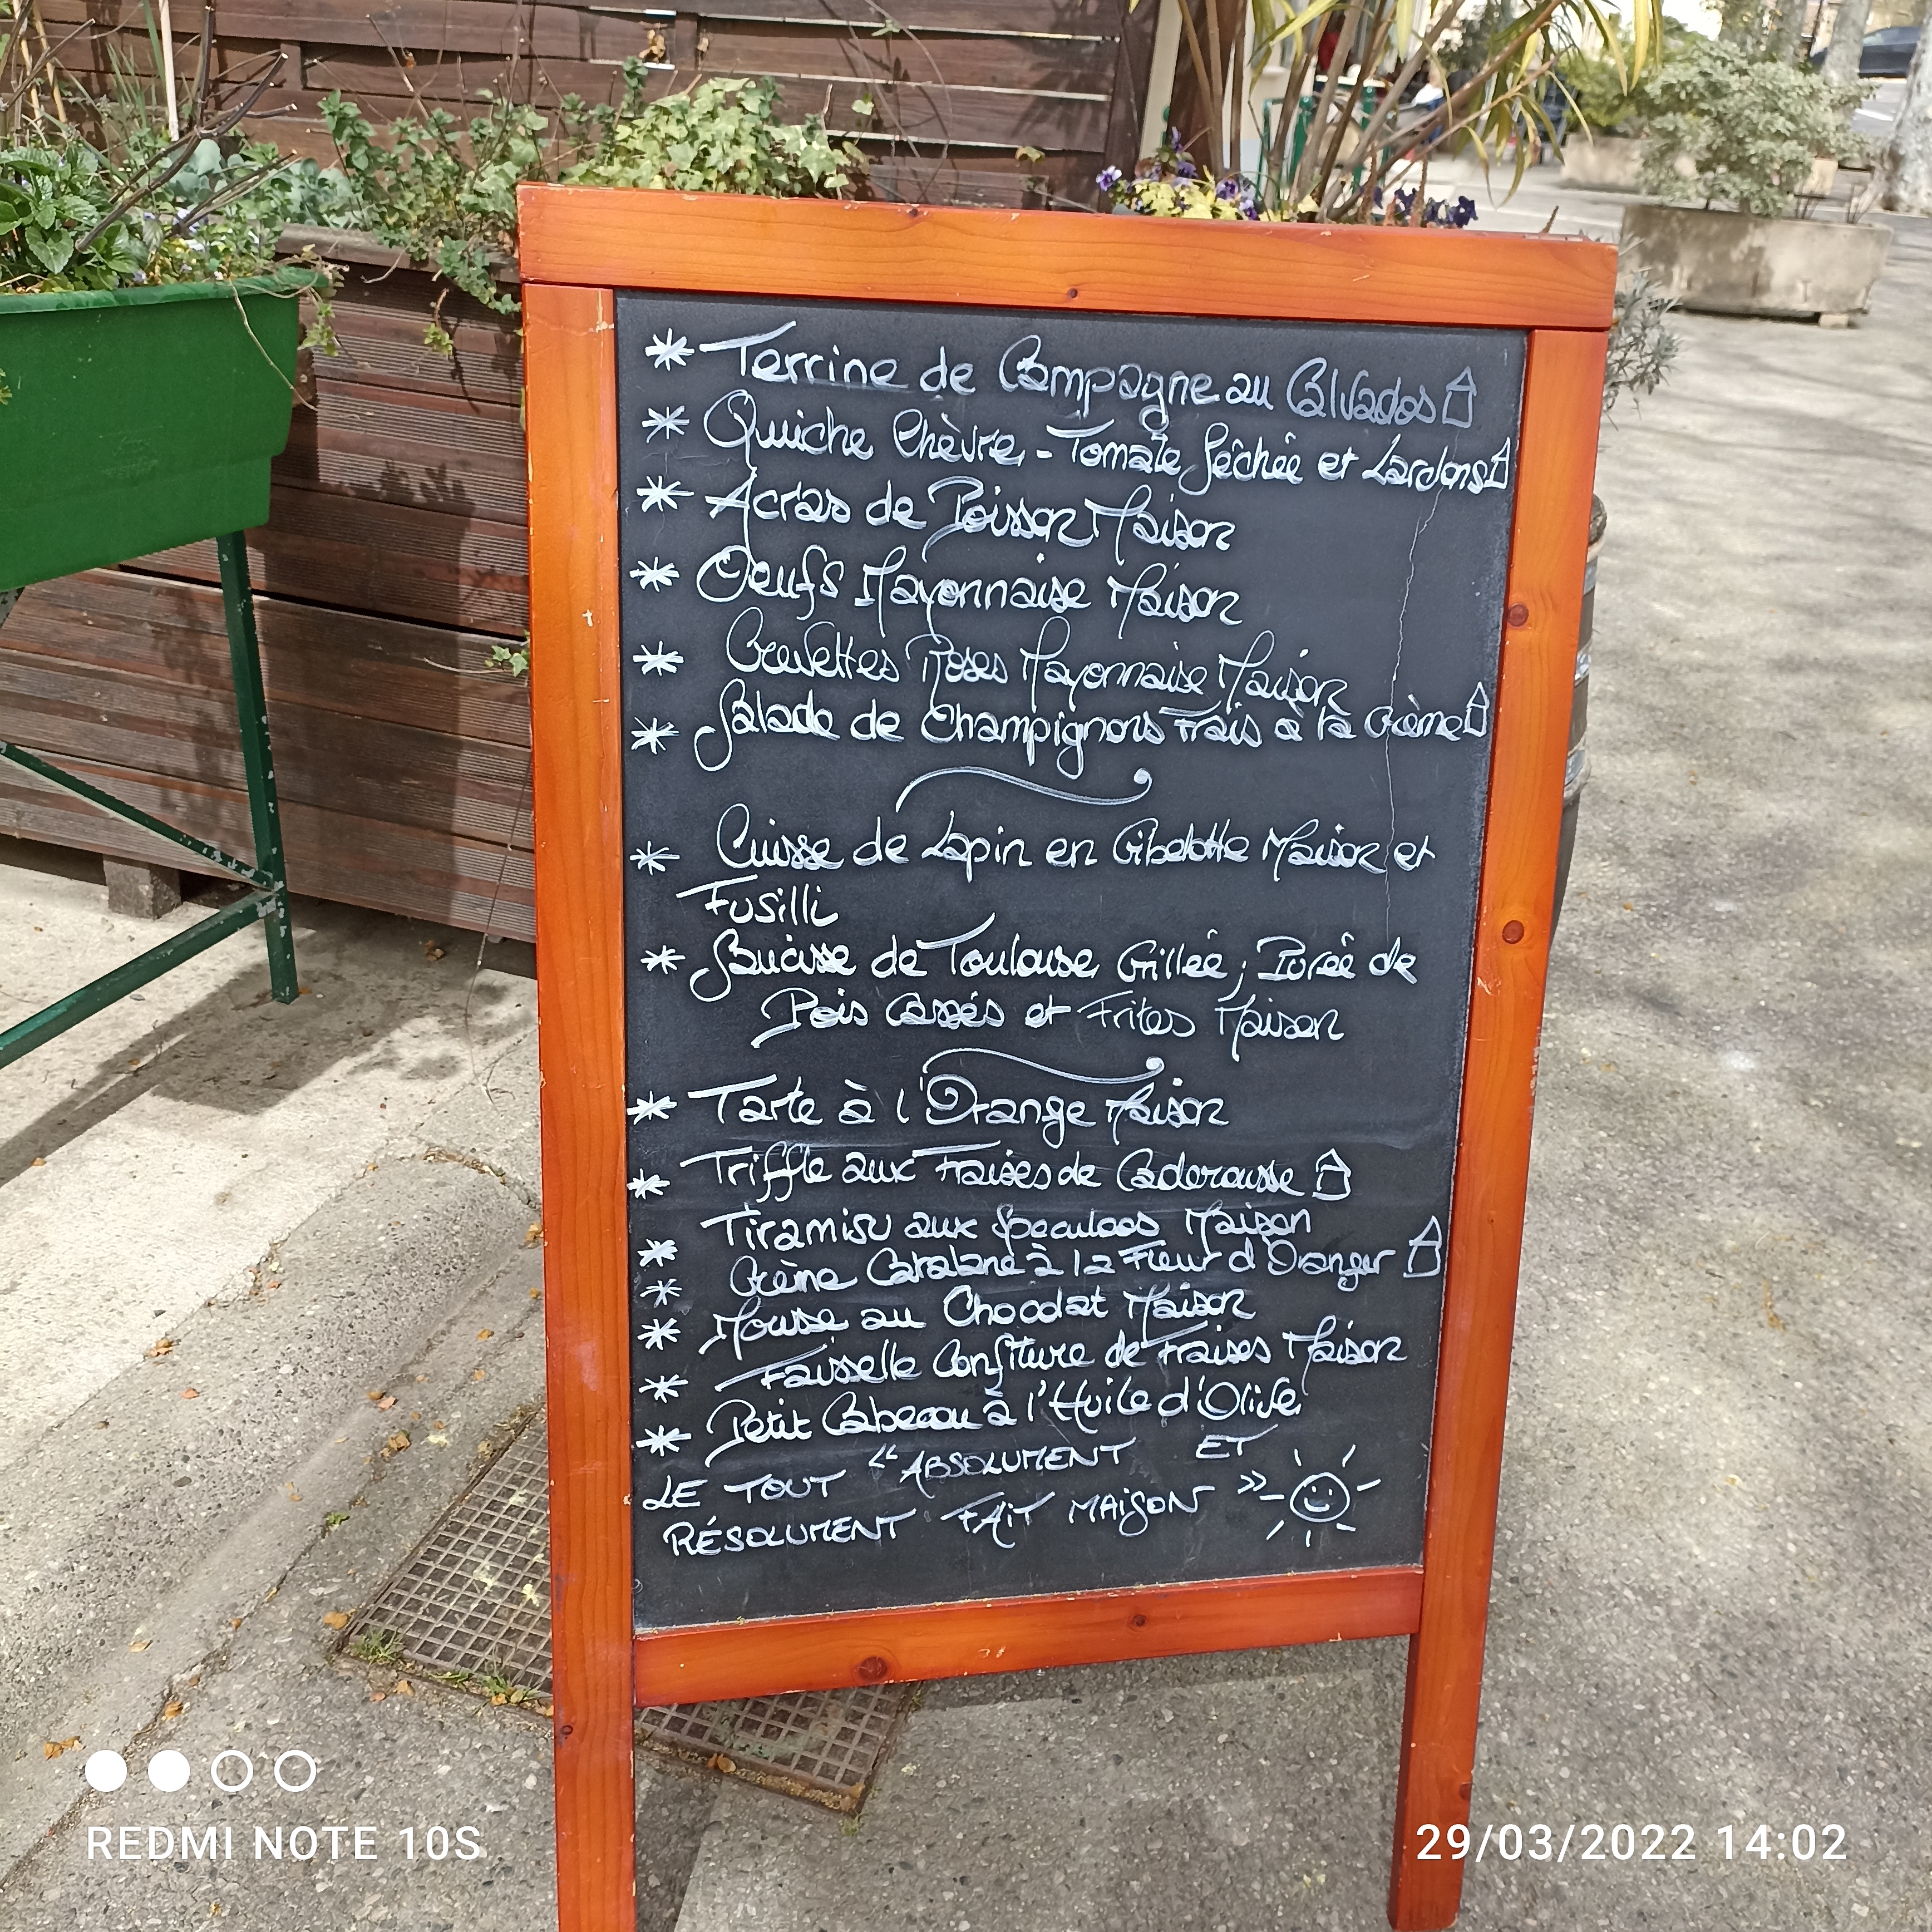 * Terrine de Campagne au Calvados
* Quiche Chèvre - Tomate Séchée et Lardons
* Acras de Poisson Maison
* Oeufs Mayonnaise Maison
* Crevettes Roses Mayonnaise Maison
* Salade de Champignons Frais à la Crème
* Cuisse de Lapin en Gibelotte Maison et
Fusilli
* Saucisse de Toulouse Grillée, Purée de
Pois Cassés et Frites Maison
* Tarte à l'Orange Maison
* Triffle aux Fraises de Caderousse
* Tiramisu aux Speculoos Maison
* Crème Catalane à la Fleur d'Oranger
* Mousse au Chocolat Maison
* Faisselle Confiture de Fraises Maison
* Petit Cabecou à l'Huile d'Olive
LE TOUT "ABSOLUMENT ET
RÉSOLUMENT FAIT MAISON"
REDMI NOTE 10S
29/03/2022 14:02